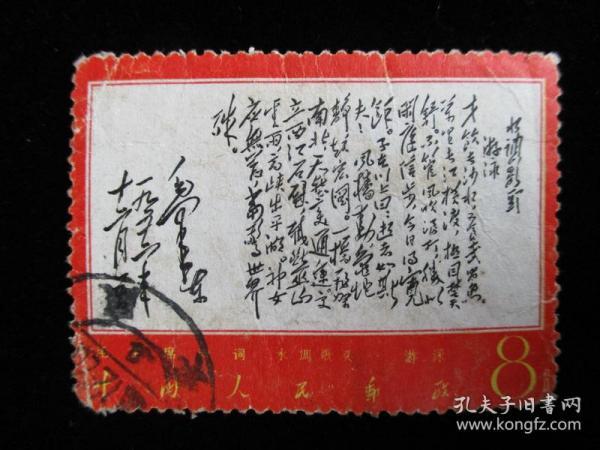 水调歌头
游泳
才饮长沙水又食武昌鱼
万里长江横渡极目楚天
舒不管风吹浪打胜似
闲庭信步今日得宽
馀。子在川上曰：逝者如斯
夫！风樯动龟蛇
静起宏图。一桥飞架
南北天堑变通途。更
立西江石壁截断巫山
云雨高峡出平湖。神女
应无恙当惊世界
殊。
毛泽东
一九五六年
十二月
毛主席词 水调歌头 游泳
中国人民邮政
8
孔夫子旧书网
www.kongfz.com